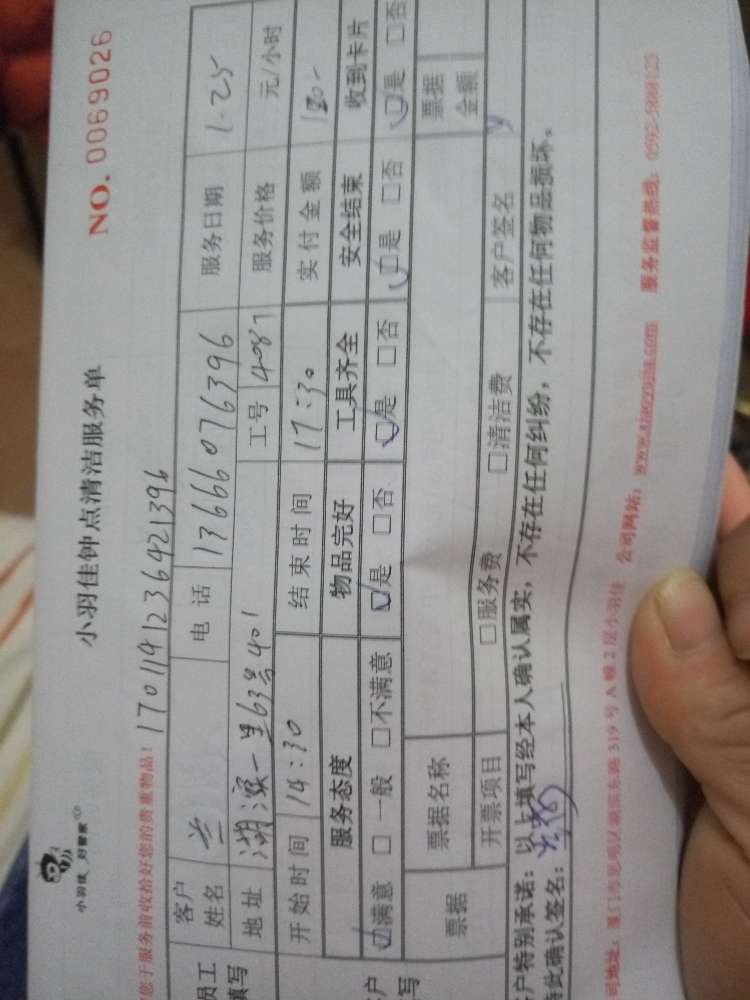 小羽佳 好管家
小羽佳钟点清洁服务单
NO. 0069026
您于服务前收拾好您的贵重物品! 1701191236421396
员工
填写
客户
姓名 兰 电话 13666076396 服务日期 1.25
地址 湖滨一里63号401 工号 4087 服务价格 元/小时
开始时间 14:30 结束时间 17:30 实付金额
服务态度 物品完好 工具齐全 安全结束 收到卡片
☑满意 □一般 □不满意 ☑是 □否 ☑是 □否 ☑是 □否 ☑是 □否
票据 票据名称 票据
金额
开票项目 □服务费 □清洁费 客户签名
户特别承诺: 以上填写经本人确认属实, 不存在任何纠纷, 不存在任何物品损坏。
特此确认签名:
司地址: 厦门市思明区湖滨东路319号A幢2层小羽佳 公司网站: www.xiaoyujia.com 服务监督热线: 0592-5888123